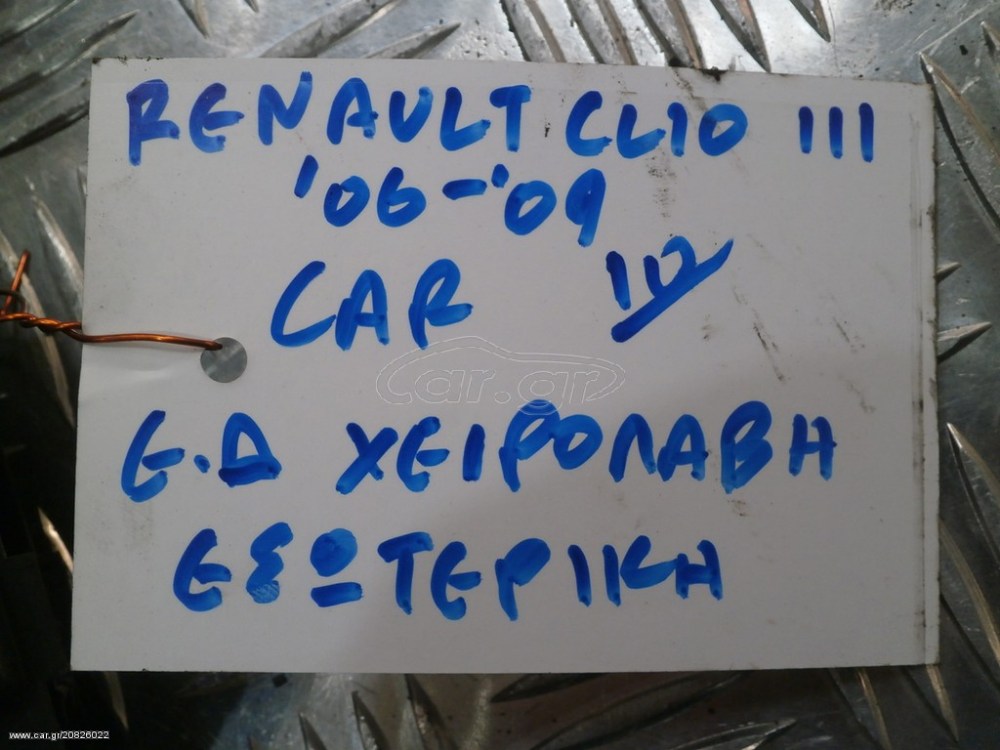 RENAULT CLIO III
'06-'09
CAR 10
Ε.Δ ΧΕΙΡΟΛΑΒΗ
ΕΞΩΤΕΡΙΚΗ
car.gr
www.car.gr/20826022